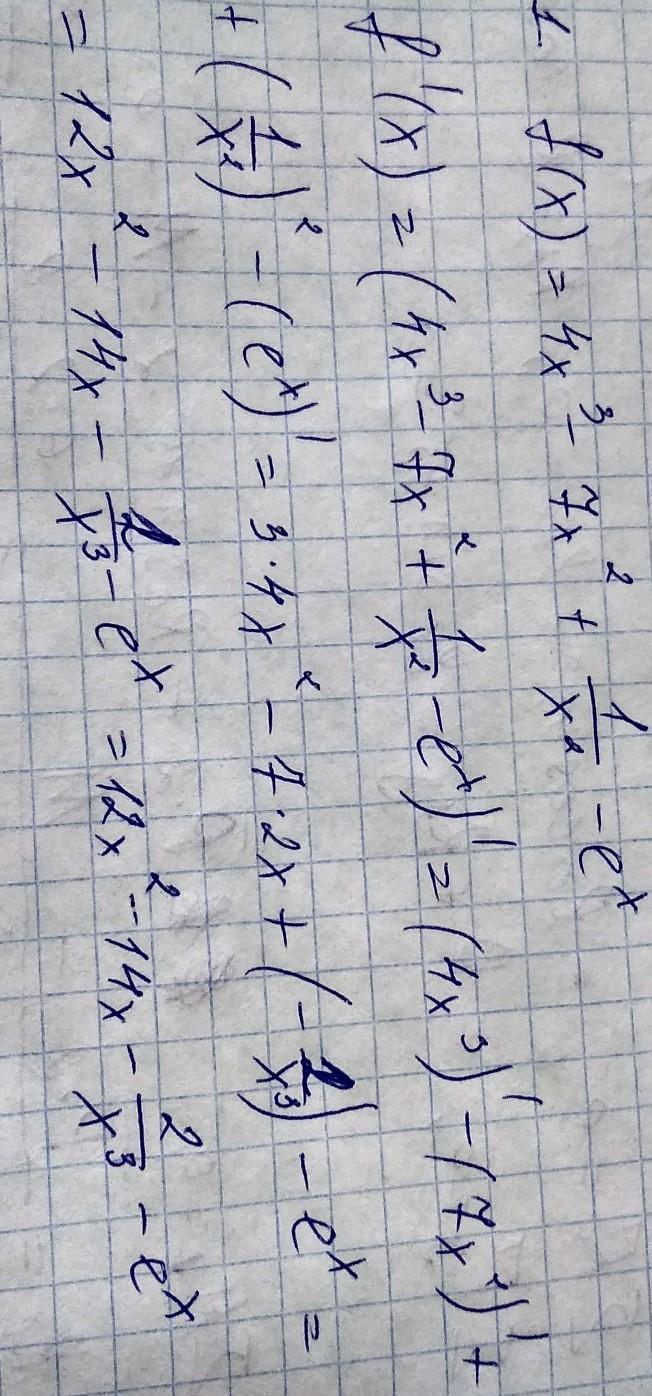 1. f(x) = 4x³ - 7x² + 1/x² - eˣ
f'(x) = (4x³ - 7x² + 1/x² - eˣ)' = (4x³)' - (7x²)' +
+ (1/x²)² - (eˣ)' = 3·4x² - 7·2x + (- 2/x³) - eˣ =
= 12x² - 14x - 2/x³ - eˣ = 12x² - 14x - 2/x³ - eˣ